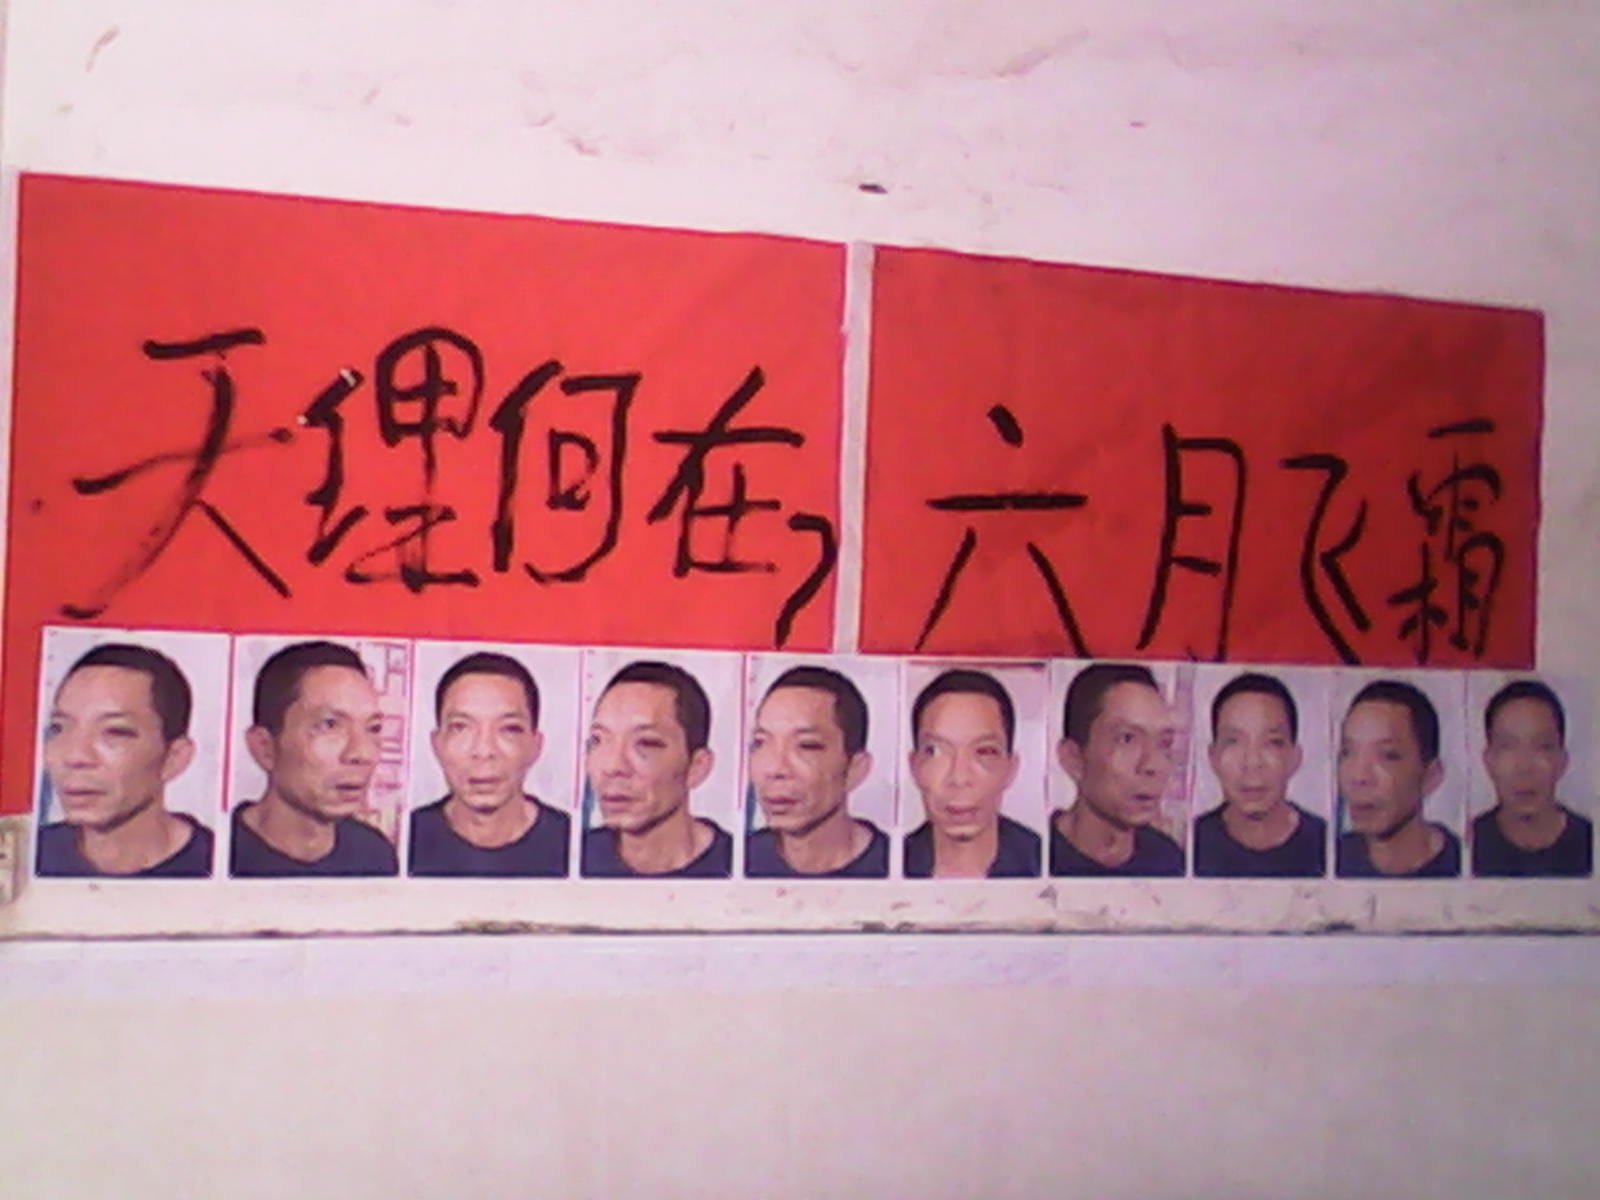 天理何在，六月飞霜